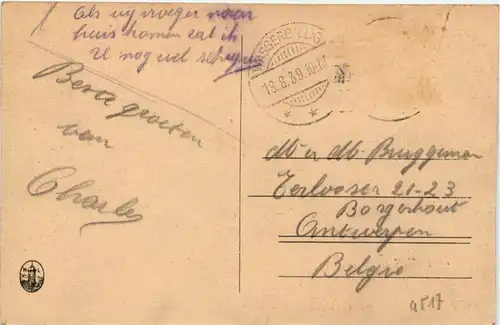 Als wy vroeger naar
huis komen zal ik
U nog wel schryven
Beste groeten
van
Charles
WASSERBILLIG
13.8.39.10-17
Mr en Mme Bruggeman
Terlooser 21-23
Borgerhout
Antwerpen
Belgie
9817